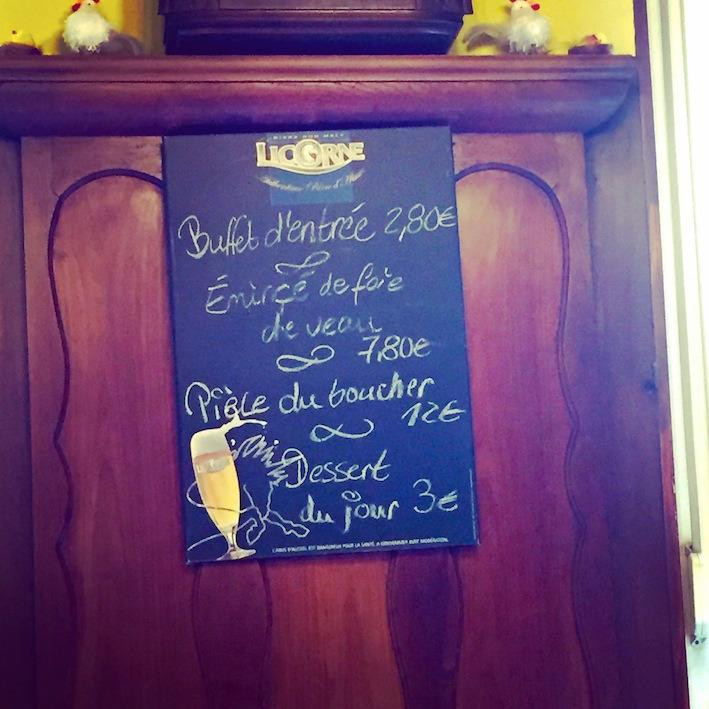 BIERE PUR MALT
LICORNE
Buffet d'entrée 2,80€
Émincé de foie
de veau
7,80€
Pièce du boucher
12€
Dessert
du jour 3€
L'ABUS D'ALCOOL EST DANGEREUX POUR LA SANTÉ. A CONSOMMER AVEC MODÉRATION.